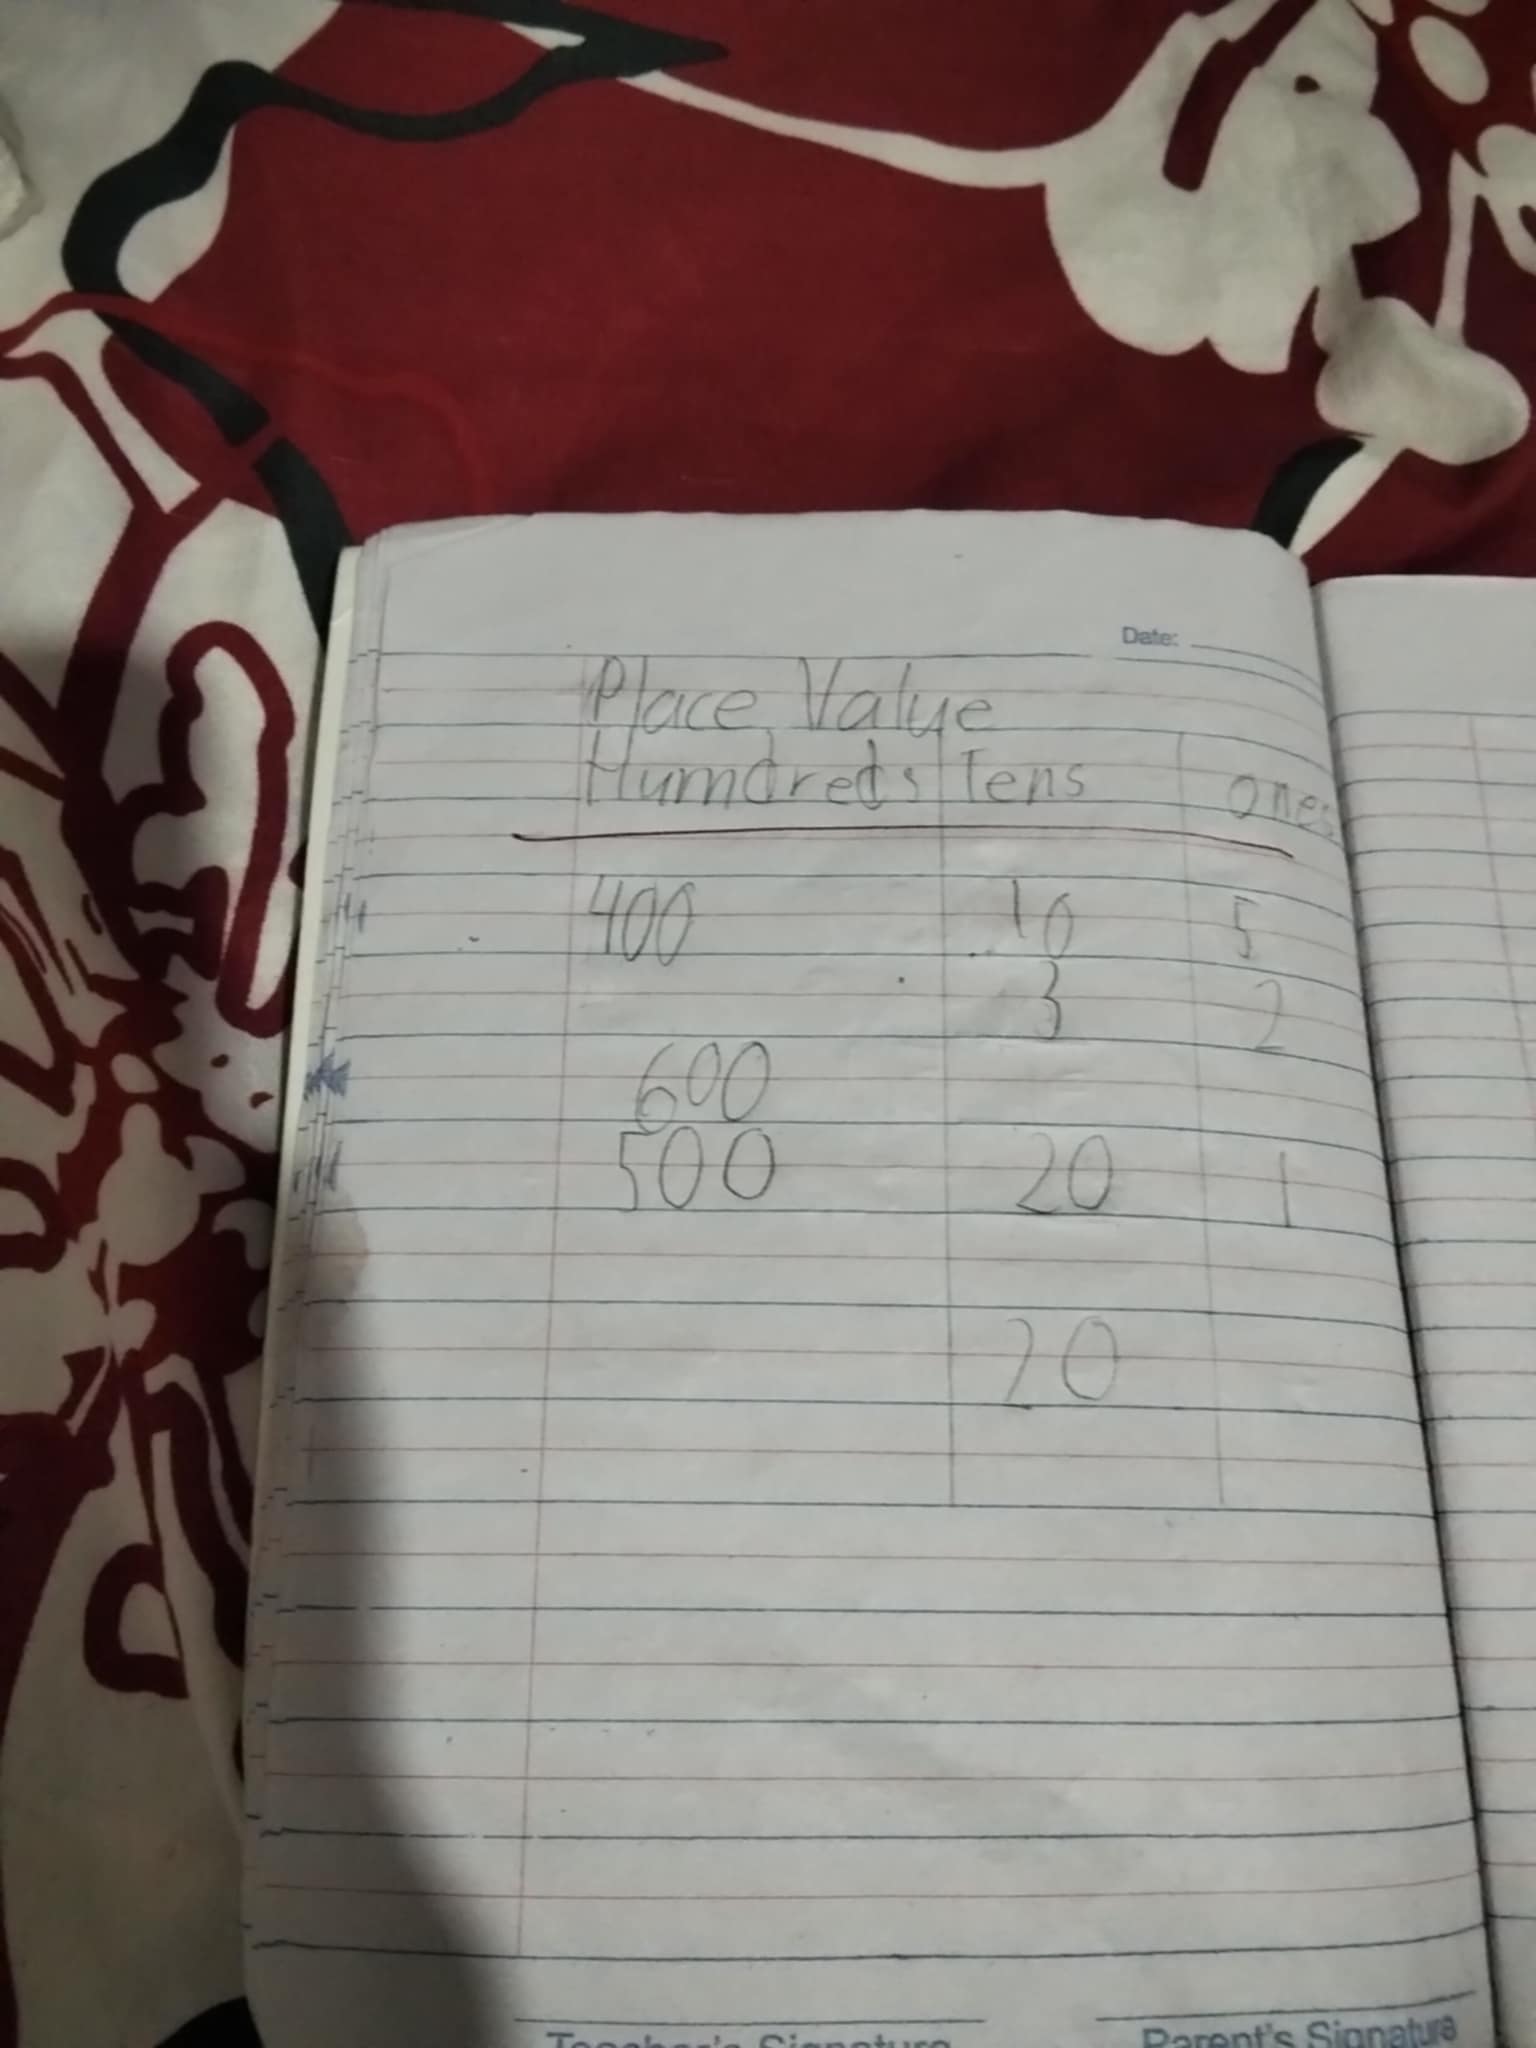 Date:
Place Value
Humdreds Tens ones
400 10 5
3 2
600
500 20 1
20
Teacher's Signature Parent's Signature